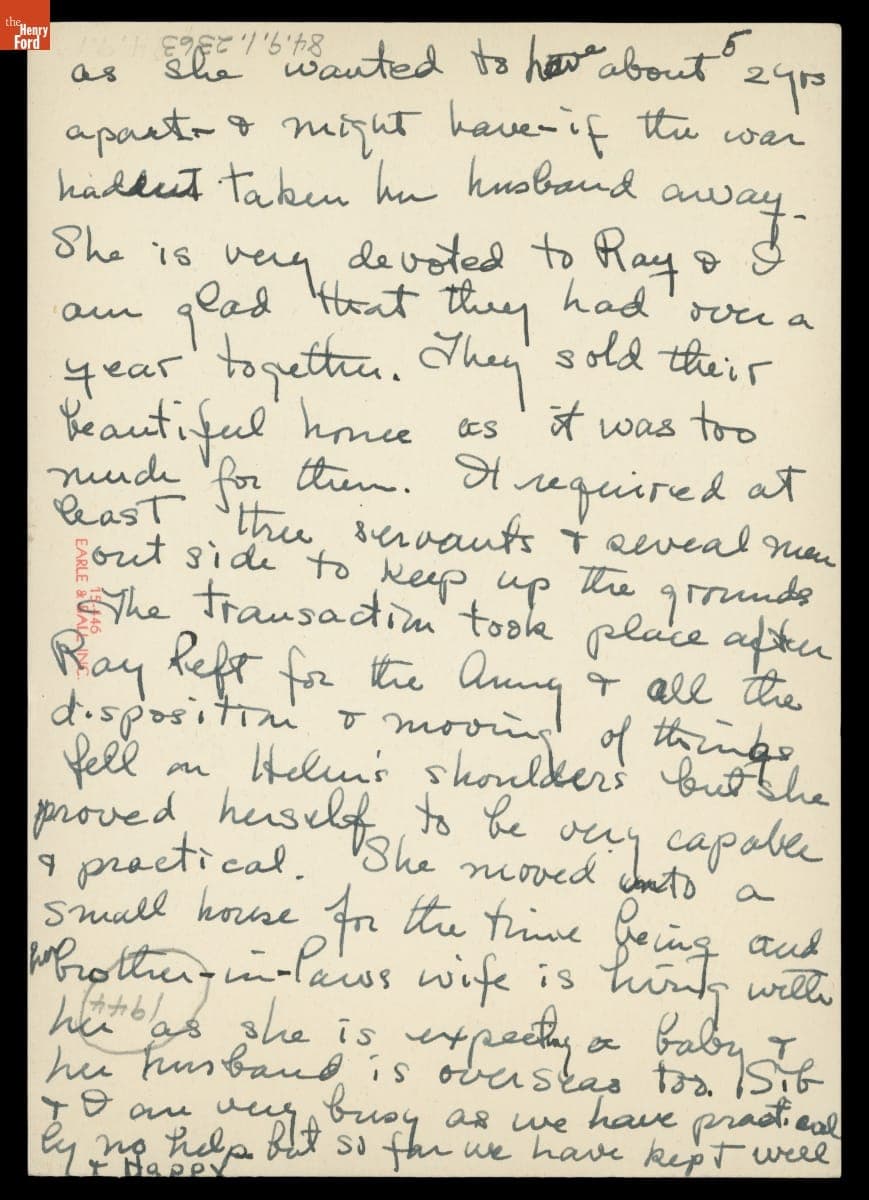 the Henry Ford
84.9.1.2363
as she wanted to have about 5 2 yrs
apart - & might have - if the war
haddent taken her husband away -
She is very devoted to Ray & I
am glad that they had over a
year together. They sold their
beautiful home as it was too
much for them. It required at
least three servants & several men
out side to keep up the grounds
The transaction took place after
Ray left for the Army & all the
disposition & moving of things
fell on Helen's shoulders but she
proved herself to be very capable
& practical. She moved into a
small house for the time being and
her brother-in-laws wife is living with
her as she is expecting a baby &
her husband is overseas too. Sib
& I are very busy as we have practical
ly no help but so far we have kept well
& Happy
1944
EARLE & INC.